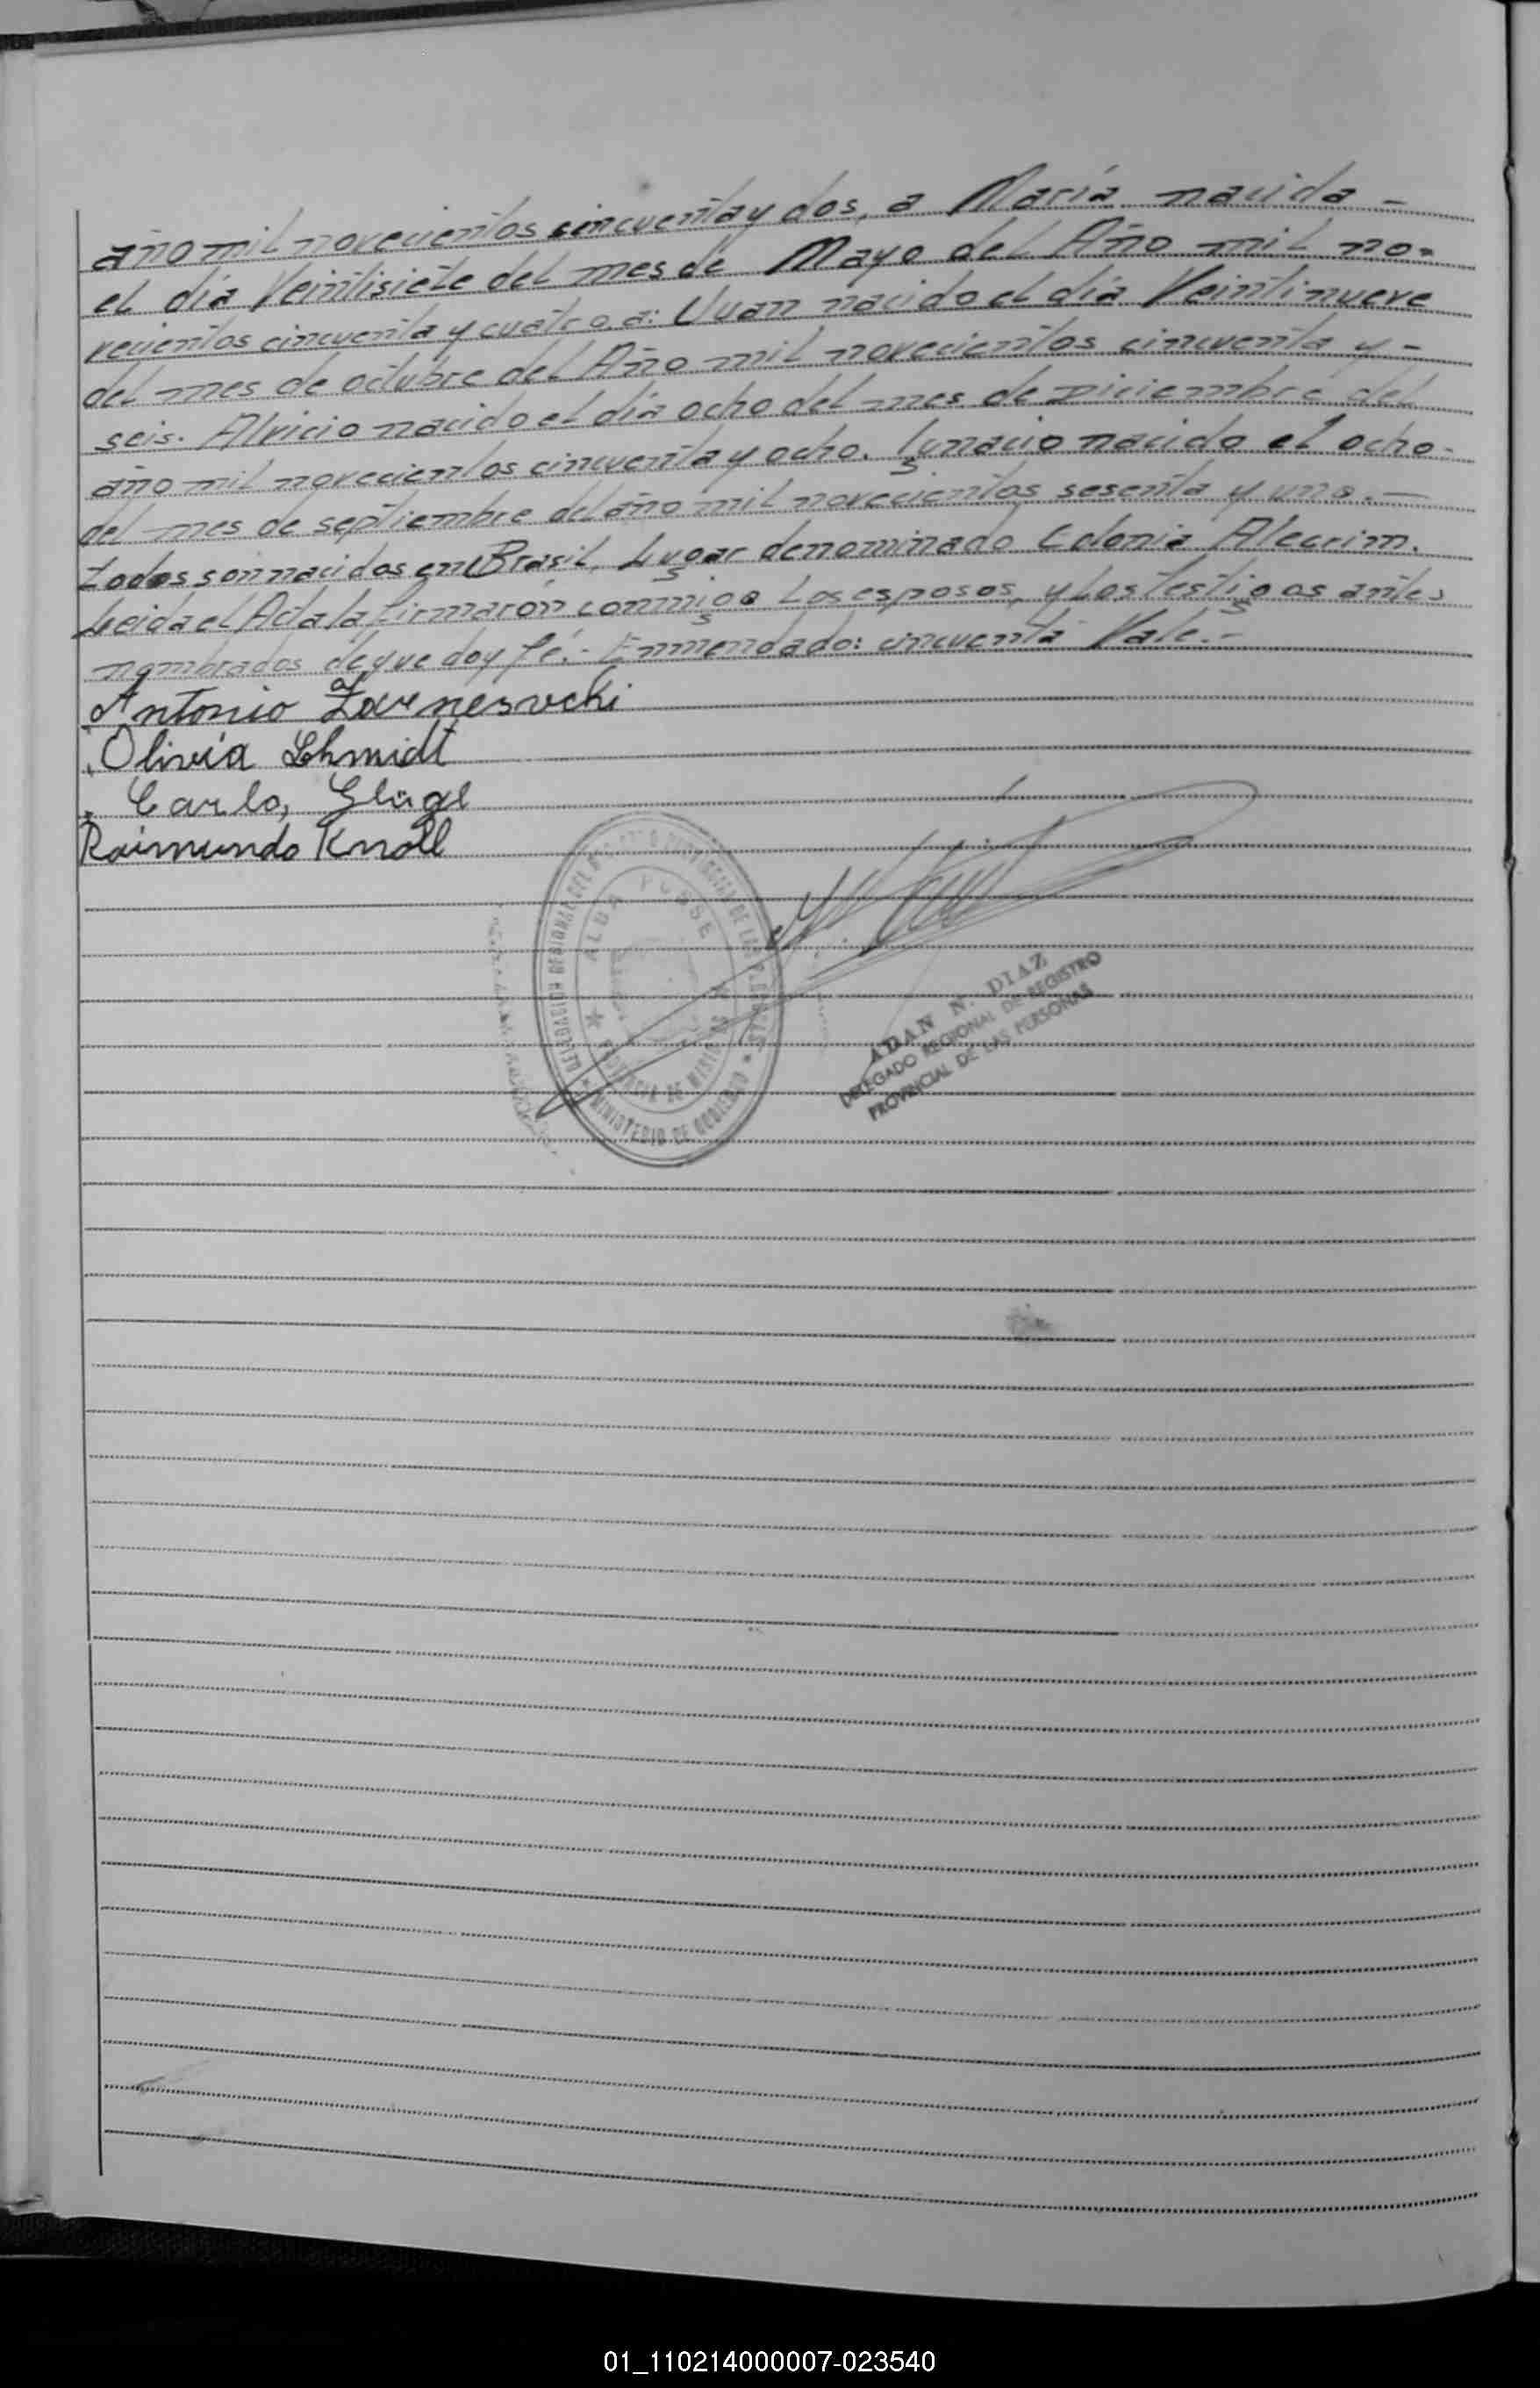 año mil novecientos cincuenta y dos, a María nacida -
el día Veintisiete del mes de Mayo del Año mil no-
vecientos cincuenta y cuatro, a: Juan nacido el día Veintinueve
del mes de octubre del Año mil novecientos cincuenta y -
seis. Alvicio nacido el día ocho del mes de Diciembre del
año mil novecientos cincuenta y ocho. Ignacio nacido el ocho -
del mes de septiembre del año mil novecientos sesenta y uno. —
todos son nacidos en Brasil, lugar denominado Colonia Alecrim.
Leida el Acta la firmaron conmigo Los esposos, y los testigos antes
nombrados de que doy fé. - Enmendado: cincuenta Vale. -
Antonio
Olivia Schmidt
Carlo,
Raimundo Knoll
DELEGACION REGIONAL DEL REGISTRO PROVINCIAL DE LAS PERSONAS
ALBA POSSE
PROVINCIA DE MISIONES
MINISTERIO DE GOBIERNO
ADAN N. DIAZ
DELEGADO REGIONAL DE REGISTRO
PROVINCIAL DE LAS PERSONAS
01_110214000007-023540